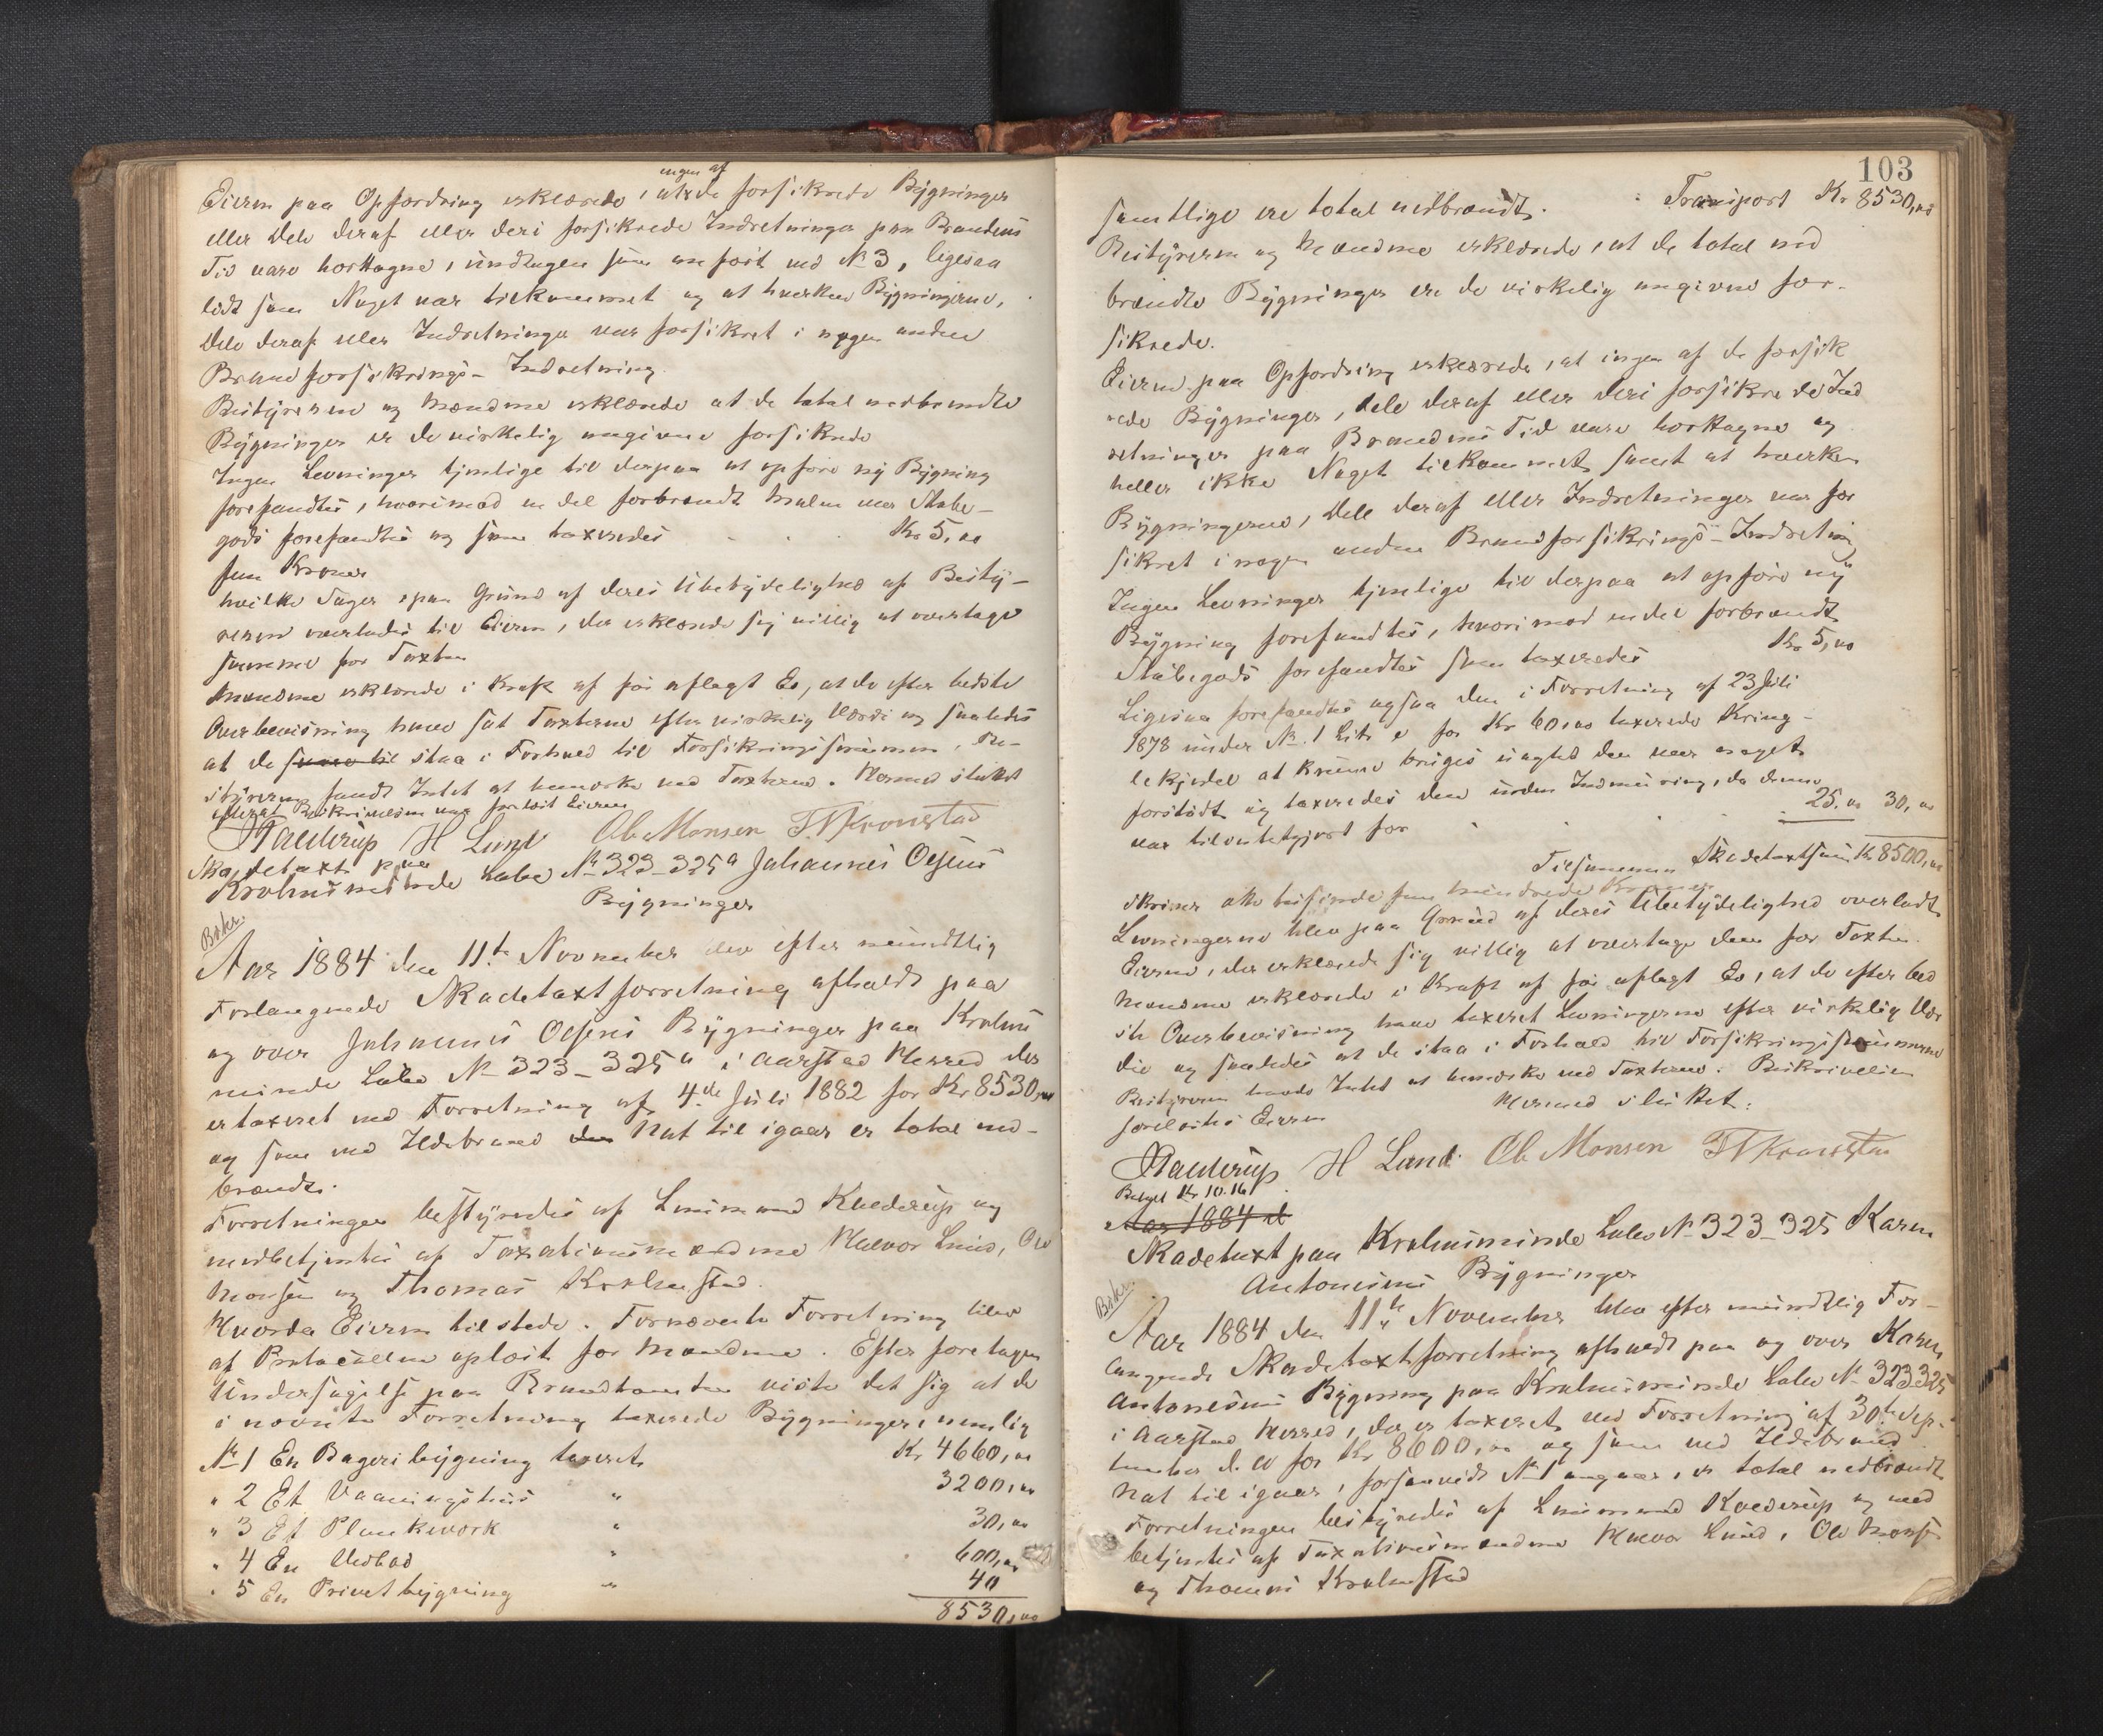 ingen af
Eieren paa Opfordring erklærede, at de forsikrede Bygninger
eller Dele deraf eller deri forsikrede Indretninger paa Brandens
Tid vare borttagne, undtagen som anført ved No 3, ligesaa
lidt som Noget var tilkommet og at hverken Bygningerne,
Dele deraf eller Indretninger var forsikret i nogen anden
Brandforsikrings-Indretning.
Bestyreren og Mændene erklærede at de total nedbrændte
Bygninger er de virkelig angivne forsikrede
Ingen Levninger tjenlige til derpaa at opføre ny Bygning
forefandtes, hvorimod en del forbrændt Malm og Støbe-
gods forefandtes og som taxeredes Kr 5,00
fem Kroner
hvilke Sager paa Grund af deres Ubetydelighed af Besty-
reren overlodes til Eieren, der erklærede sig villig at overtage
samme for Taxten
Mændene erklærede i Kraft af før aflagt Ed, at de efter bedste
Overbevisning have sat Taxterne efter virkelig Værdi og saaledes
at de staa i Forhold til Forsikringssummen, Be-
styreren fandt Intet at bemærke ved Taxterne. Hermed sluttet
efterat Beskrivelsen var forelæst Eieren
Kalderup H Lund Ole Monsen T Kronstad
Skadetaxt paa
Krohnsminde Løbe No 323-325a Johannes Olsens
Bygninger
Beskr.
Aar 1884 den 11te November blev efter mundtlig
Forlangende Skadetaxtforretning afholdt paa
og over Johannes Olsens Bygninger paa Krohns
minde Løbe No 323-325a i Aarstad Herred der
er taxeret ved Forretning af 4de Juli 1882 for Kr 8530,00
og som ved Ildebrand Nat til igaar er total ned-
brændt.
Forretningen bestyredes af Lensmand Kalderup og
medbetjentes af Taxationsmændene Halvor Lund, Ole
Monsen og Thomas Krohnstad.
Hvorda Eieren tilstede. Fornævnte Forretning blev
af Protocollen oplæst for Mændene. Efter foretagen
Undersøgelse paa Brandtomten viste det sig at de
i nævnte Forretning taxerede Bygninger, nemlig
No 1 En Bageribygning taxeret Kr 4660,00
" 2 Et Vaaningshus " 3200,00
" 3 Et Plankverk " 30,00
" 4 En Vedbod " 600,00
" 5 En Privetbygning " 40
8530,00
103
Transport Kr 8530,00
samtlige ere total nedbrændt.
Bestyreren og Mændene erklærede, at de total ned
brændte Bygninger ere de virkelig angivne for-
sikrede.
Eieren paa Opfordring erklærede, at ingen af de forsik
rede Bygninger, dele deraf eller deri forsikrede Ind
retninger paa Brandens Tid vare borttagne og
heller ikke Noget tilkommet samt at hverken
Bygningerne, Dele deraf eller Indretninger var for
sikret i nogen anden Brandforsikrings-Indretning
Ingen Levninger tjenlige til derpaa at opføre ny
Bygning forefandtes, hvorimod endel forbrændt
Støbegods forefandtes som taxeredes Kr 5,00
Ligesaa forefandtes ogsaa den i Forretning af 23 Juli
1878 under No 1 Litr e for Kr 60,00 taxerede Kring-
lekjedel at kunne bruges uagtet den var noget
forstødt og taxeredes den uden Indmuring, da denne
var tilintetgjort for 25,00 30,00
Tilsammen Skadetaxtsum Kr 8500,00
skriver otte tusinde fem hundrede Kroner
Levningerne blev paa Grund af deres Ubetydelighed overladt
Eieren, der erklærede sig villig at overtage dem for Taxten.
Mændene erklærede i Kraft af før aflagt Ed, at de efter bed
ste Overbevisning have taxeret Levningerne efter virkelig Vær
die og saaledes at de staa i Forhold til Forsikringssummerne
Bestyreren havde Intet at bemærke ved Taxterne. Beskrivelsen
forelæstes Eieren Hermed sluttet.
Kalderup H Lund Ole Monsen T Kronstad
Betalt Kr 10.16
Aar 1884 d
Skadetaxt paa Krohnsminde Løbe No 323-325 Karen
Antonisens Bygninger
Beskr.
Aar 1884 den 11te November blev efter mundtlig For-
langende Skadetaxtforretning afholdt paa og over Karen
Antonisens Bygning paa Krohnsminde Løbe No 323325
i Aarstad Herred, der er taxeret ved Forretning af 30te Sep-
tember d. A for Kr 8600,00 og som ved Ildebrand
Nat til igaar, forsaavidt No 1 angaar, er total nedbrændt
Forretningen bestyredes af Lensmand Kalderup og med
betjentes af Taxationsmændene Halvor Lund, Ole Monsen
og Thomas Krohnstad